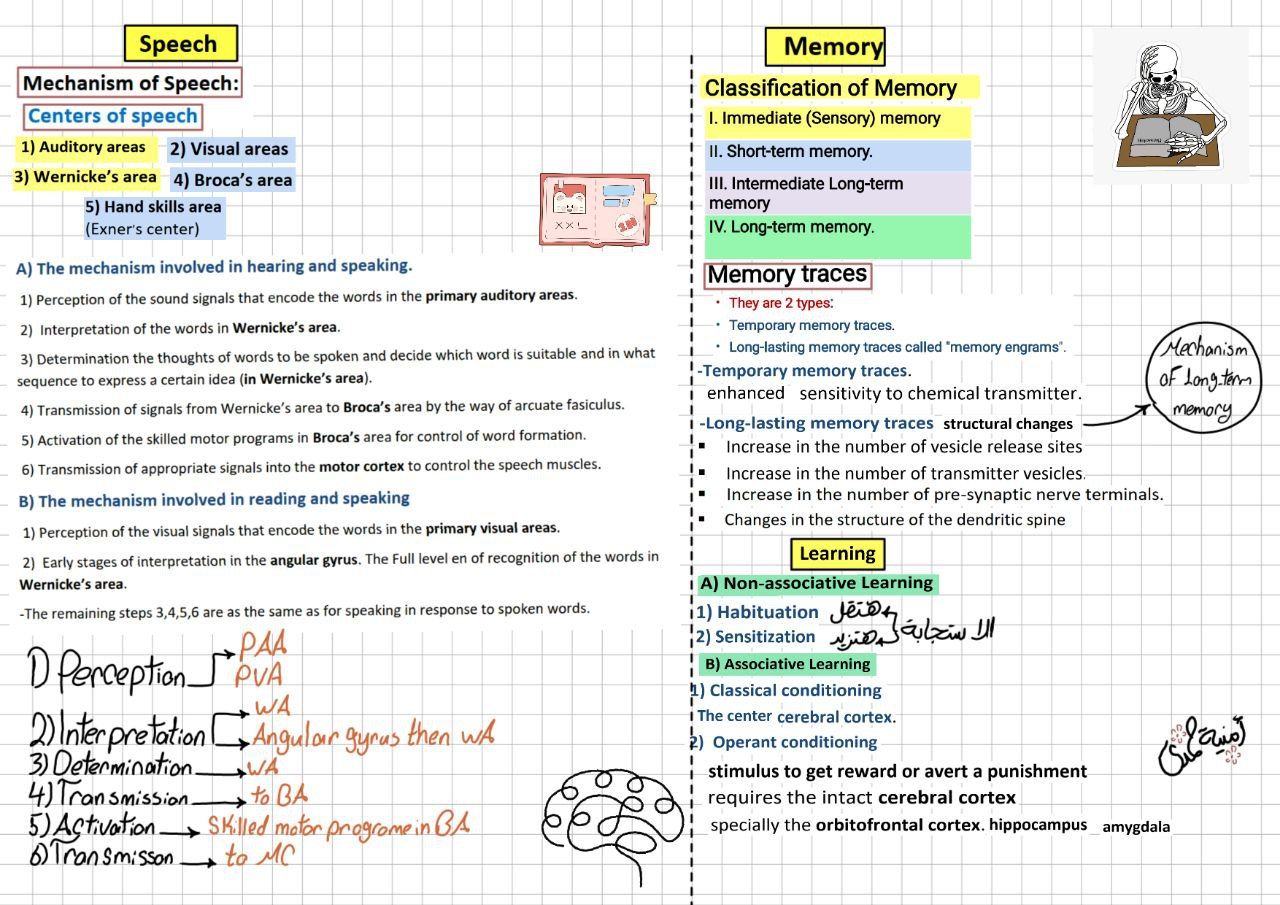 Speech
Mechanism of Speech:
Centers of speech
1) Auditory areas
2) Visual areas
3) Wernicke's area
4) Broca's area
5) Hand skills area
(Exner's center)
A) The mechanism involved in hearing and speaking.
1) Perception of the sound signals that encode the words in the primary auditory areas.
2) Interpretation of the words in Wernicke's area.
3) Determination the thoughts of words to be spoken and decide which word is suitable and in what
sequence to express a certain idea (in Wernicke's area).
4) Transmission of signals from Wernicke's area to Broca's area by the way of arcuate fasiculus.
5) Activation of the skilled motor programs in Broca's area for control of word formation.
6) Transmission of appropriate signals into the motor cortex to control the speech muscles.
B) The mechanism involved in reading and speaking
1) Perception of the visual signals that encode the words in the primary visual areas.
2) Early stages of interpretation in the angular gyrus. The Full level en of recognition of the words in
Wernicke's area.
-The remaining steps 3,4,5,6 are as the same as for speaking in response to spoken words.
1) Perception
PAA
PVA
2) Interpretation
WA
Angular gyrus then WA
3) Determination WA
4) Transmission to BA
5) Activation Skilled motor programe in BA
6) Transmisson to MC
Memory
Classification of Memory
I. Immediate (Sensory) memory
II. Short-term memory.
III. Intermediate Long-term
memory
IV. Long-term memory.
Memory traces
• They are 2 types:
• Temporary memory traces.
• Long-lasting memory traces called "memory engrams".
-Temporary memory traces.
enhanced sensitivity to chemical transmitter.
-Long-lasting memory traces structural changes
Mechanism
of Long-term
memory
▪ Increase in the number of vesicle release sites
▪ Increase in the number of transmitter vesicles.
▪ Increase in the number of pre-synaptic nerve terminals.
▪ Changes in the structure of the dendritic spine
Learning
A) Non-associative Learning
1) Habituation هتقل
2) Sensitization هتزيد
الاستجابة
B) Associative Learning
1) Classical conditioning
The center cerebral cortex.
2) Operant conditioning
stimulus to get reward or avert a punishment
requires the intact cerebral cortex
specially the orbitofrontal cortex. hippocampus amygdala
أمنية